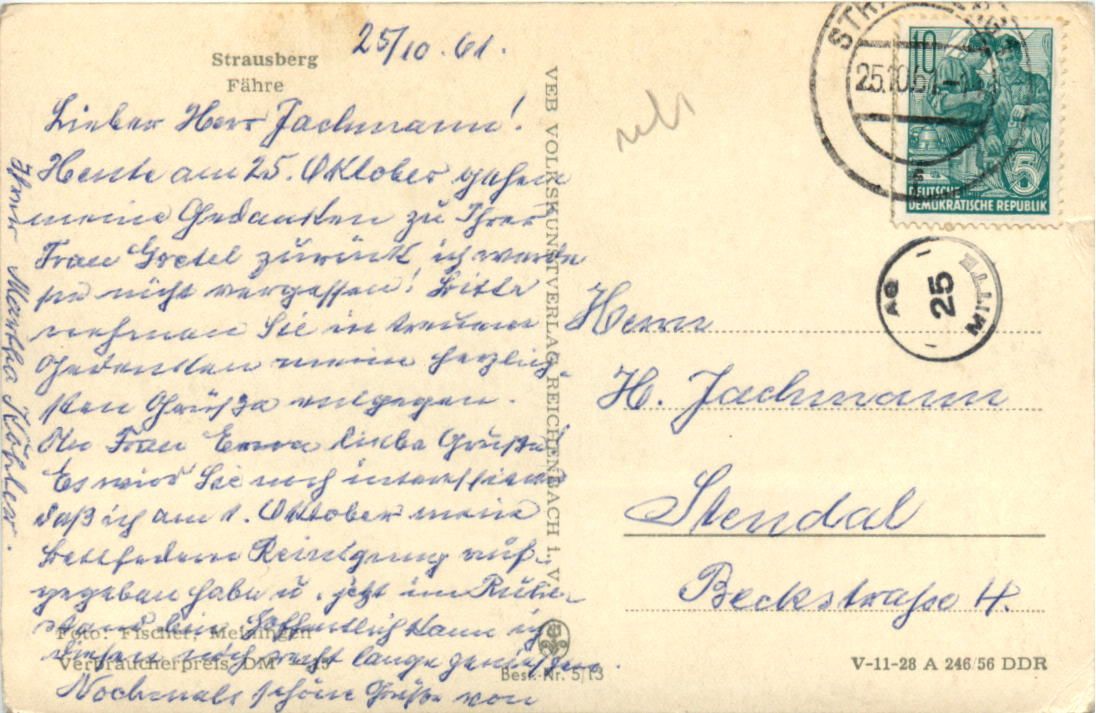 25/10. 61.
Strausberg
Fähre
Lieber Herr Jachmann!
Heute am 25. Oktober gehen
meine Gedanken zu Ihrer
Frau Gretel zurück ich werde
sie nicht vergessen! Bitte
nehmen Sie in treuem
Gedenken meine herzlich-
sten Grüße entgegen.
An Frau Erna liebe Grüße!
Es wird Sie noch interessieren
daß ich am 1. Oktober meine
Bettfedern Reinigung auf-
gegeben habe u. jetzt im Ruhe-
stand bin hoffentlich kann ich
diesen noch recht lange genießen.
Nochmals schöne Grüße von
Ihrer Martha Köhler.
Foto: Fischer, Meiningen
Verbraucherpreis DM
Best.-Nr. 5/13
VEB VOLKSKUNSTVERLAG REICHENBACH i. V.
25.10.61
10
5
DEUTSCHE
DEMOKRATISCHE REPUBLIK
AG
25
MITTE
Herrn
H. Jachmann
Stendal
Beckstraße 4.
V-11-28 A 246/56 DDR